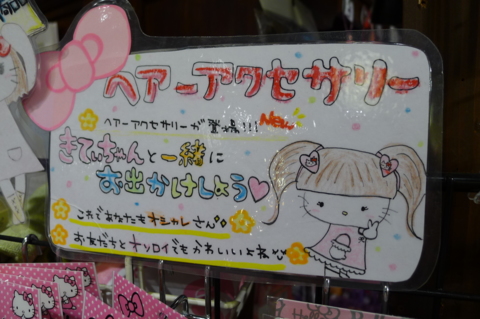 ヘアーアクセサリー
ヘアーアクセサリーが登場!!! New
きてぃちゃんと一緒に
お出かけしよう♡
これであなたもオシャレさん
お友だちとオソロイでもかわいいよね